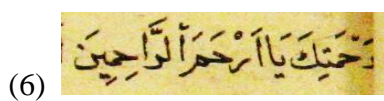 (6) رَحْمَتِكَ يَا اَرْحَمَ الرَّاحِمِينَ